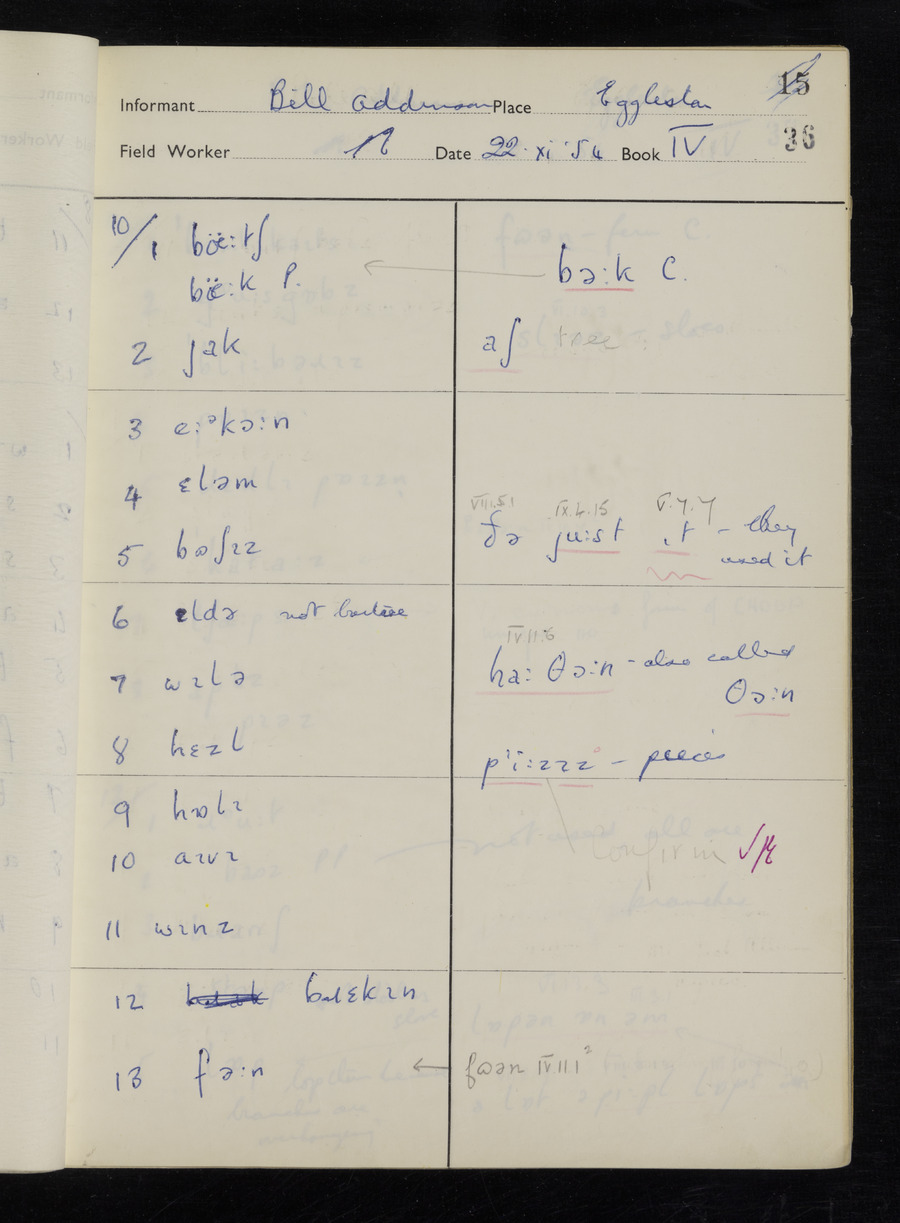 15
Informant Bill Place Eggleston
Field Worker Date 22. xi '54 Book IV 36
10/1 böë:tʃ
böë:k P. bə:k C.
2 jak aʃ tree
3 e:ᵊkɔ:n
4 ɛləm
VIII.5.1 IX.4.15 V.7.7
5 ðə ju:st ɪt - they
used it
6 ɛldə not
IV.11.6
7 wɪlə ha: θɔ:n - also called
θɔ:n
8 hɛzl
pï:zɪz - pieces
9 hɒlɪ
10 aɪvɪ confirm
11 wɪnz
12 bɹɛkɪn
13 fə:ɹn fɷən IV.11.1²